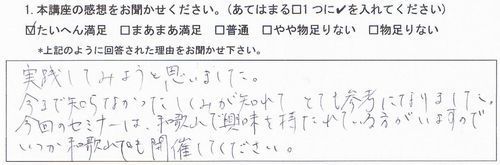 1. 本講座の感想をお聞かせください。(あてはまる□1つに✔を入れてください)
☑たいへん満足 □まあまあ満足 □普通 □やや物足りない □物足りない
*上記のように回答された理由をお聞かせ下さい。
実践してみようと思いました。
今まで知らなかったしくみが知れて、とても参考になりました。
今回のセミナーは、和歌山で興味を持たれている方がいますので
いつか和歌山でも開催してください。